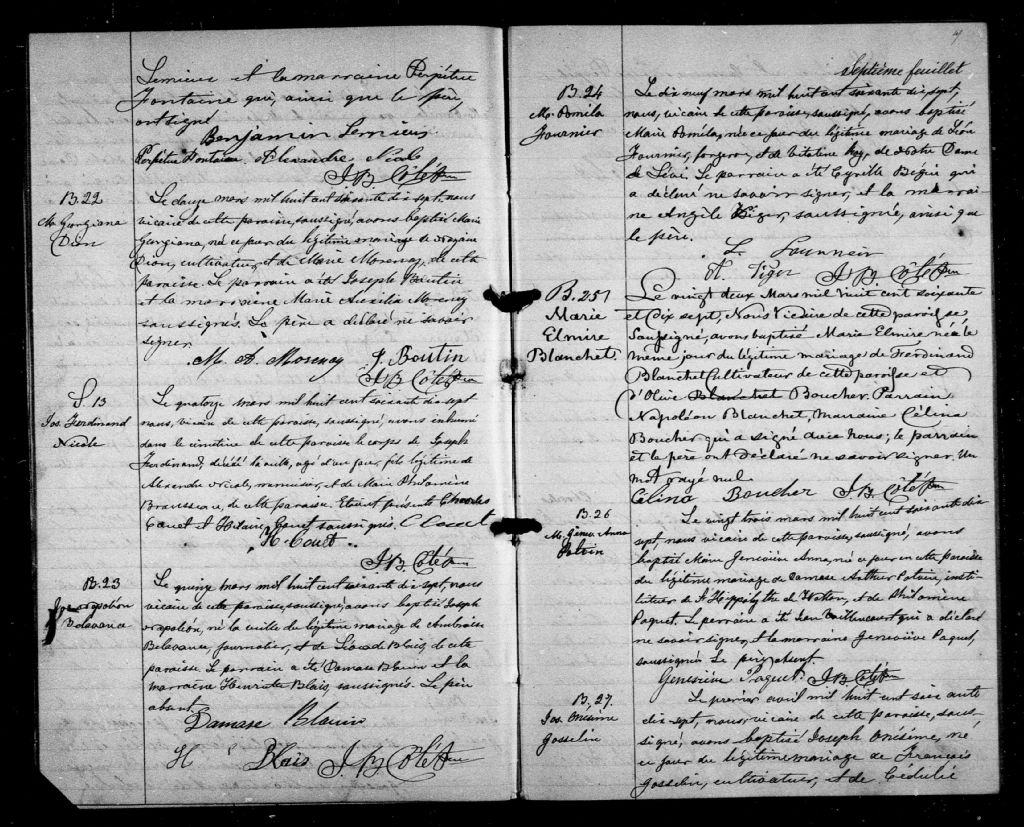 Lemieux et la marraine Perpétue
Fontaine qui, ainsi que le père,
ont signé
Benjamin Lemieux
Perpétue Fontaine. Alexandre Nicole
J B Côté Ptre
B.22
M. Georgiana
Dion
Le douze mars mil huit cent soixante dix sept, nous
vicaire de cette paroisse, soussigné, avons baptisé Marie
Georgiana, née ce jour du légitime mariage de
Dion, cultivateur, et de Marie Morency, de cette
paroisse. Le parrain a été Joseph Boutin
et la marraine Marie Morency
soussignés. Le père a déclaré ne savoir
signer
M. A. Morency J. Boutin
J B Côté Ptre
S. 13
Jos. Ferdinand
Nicole
Le quatorze mars mil huit cent soixante dix sept
nous, vicaire de cette paroisse, soussigné, avons inhumé
dans le cimetière de cette paroisse le corps de Joseph
Ferdinand, décédé la veille, agé d'un jour, fils légitime de
Alexandre Nicole, menuisier, et de Marie Philomène
Brousseau, de cette paroisse. Etaient présents Charles
Couet et Hilaire Couet soussignés. C Couet
H. Couet
J B Côté Ptre
B.23
Jos. Napoléon
Belavance
Le quinze mars mil huit cent soixante dix sept, nous
vicaire de cette paroisse, soussigné, avons baptisé Joseph
Napoléon, né la veille du légitime mariage de Ambroise
Belavance, journalier, et de Blais, de cette
paroisse. Le parrain a été Damase Blouin et la
marraine Henriette Blais, soussignés. Le père
absent.
Damase Blouin
H Blais J. B Côté Ptre
7
Septième feuillet
B.24
M. Romila
Fournier
Le dix neuf mars mil huit cent soixante dix sept,
nous, vicaire de cette paroisse, soussigné, avons baptisé
Marie Romila, née ce jour du légitime mariage de Léon
Fournier, forgeron, et de Vitaline de Notre Dame
de Lévi. Le parrain a été Cyrille Bégin qui
a déclaré ne savoir signer, et la marrai-
ne Angèle soussignée, ainsi que
le père.
L. Fournier
J. B. Côté Ptre
B. 25
Marie
Elmire
Blanchet
Le vingt deux Mars mil huit cent soixante
et Dix sept, Nous Vicaire de cette paroisse,
Soussigné, avons baptisé Marie Elmire née le
même jour du légitime mariage de Ferdinand
Blanchet Cultivateur de cette paroisse et
d'Olive Blanchet Boucher. Parrain
Napoléon Blanchet, Marraine Célina
Boucher qui a signé avec Nous; le parrain
et le père ont Déclaré ne savoir signer. Un
mot rayé nul
Célina Boucher J. B. Côté Ptre
B.26
M. Genev. Anna
Potvin
Le vingt trois mars mil huit cent soixante dix
sept, nous vicaire de cette paroisse, soussigné, avons
baptisé Marie Geneviève Anna, née ce jour en cette paroisse
du légitime mariage de Damase Arthur Potvin, insti-
tuteur de St Hippolyte de Wotton, et de Philomène
Paquet. Le parrain a été qui a déclaré
ne savoir signer, et la marraine Geneviève Paquet,
soussignée. Le père absent.
Geneviève Paquet. J B Côté Ptre
B.27.
Jos. Onésime
Gosselin
Le premier avril mil huit cent soixante
dix-sept, nous, vicaire de cette paroisse, sous-
signé, avons baptisé Joseph Onésime, né
ce jour du légitime mariage de François
Gosselin, cultivateur, et de Cédulie